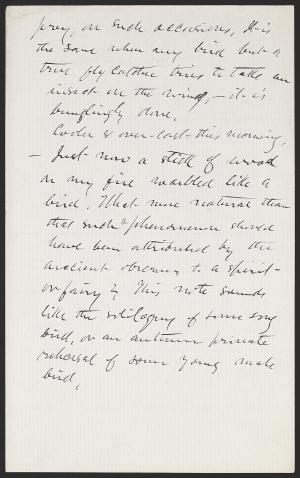 prey, on such occasions, It is
the same when any bird but a
true fly catcher tries to take an
insect on the wing, - it is
bunglingly done,
Cooler & over-cast this morning,
- Just now a stick of wood
on my fire warbled like a
bird, What more natural than
that such a phenomenon should
have been attributed by the
ancient observer to a spirit
or fairy? This note sounds
like the soliloquy of some song
bird, or an autumn private
rehersal of some young male
bird,